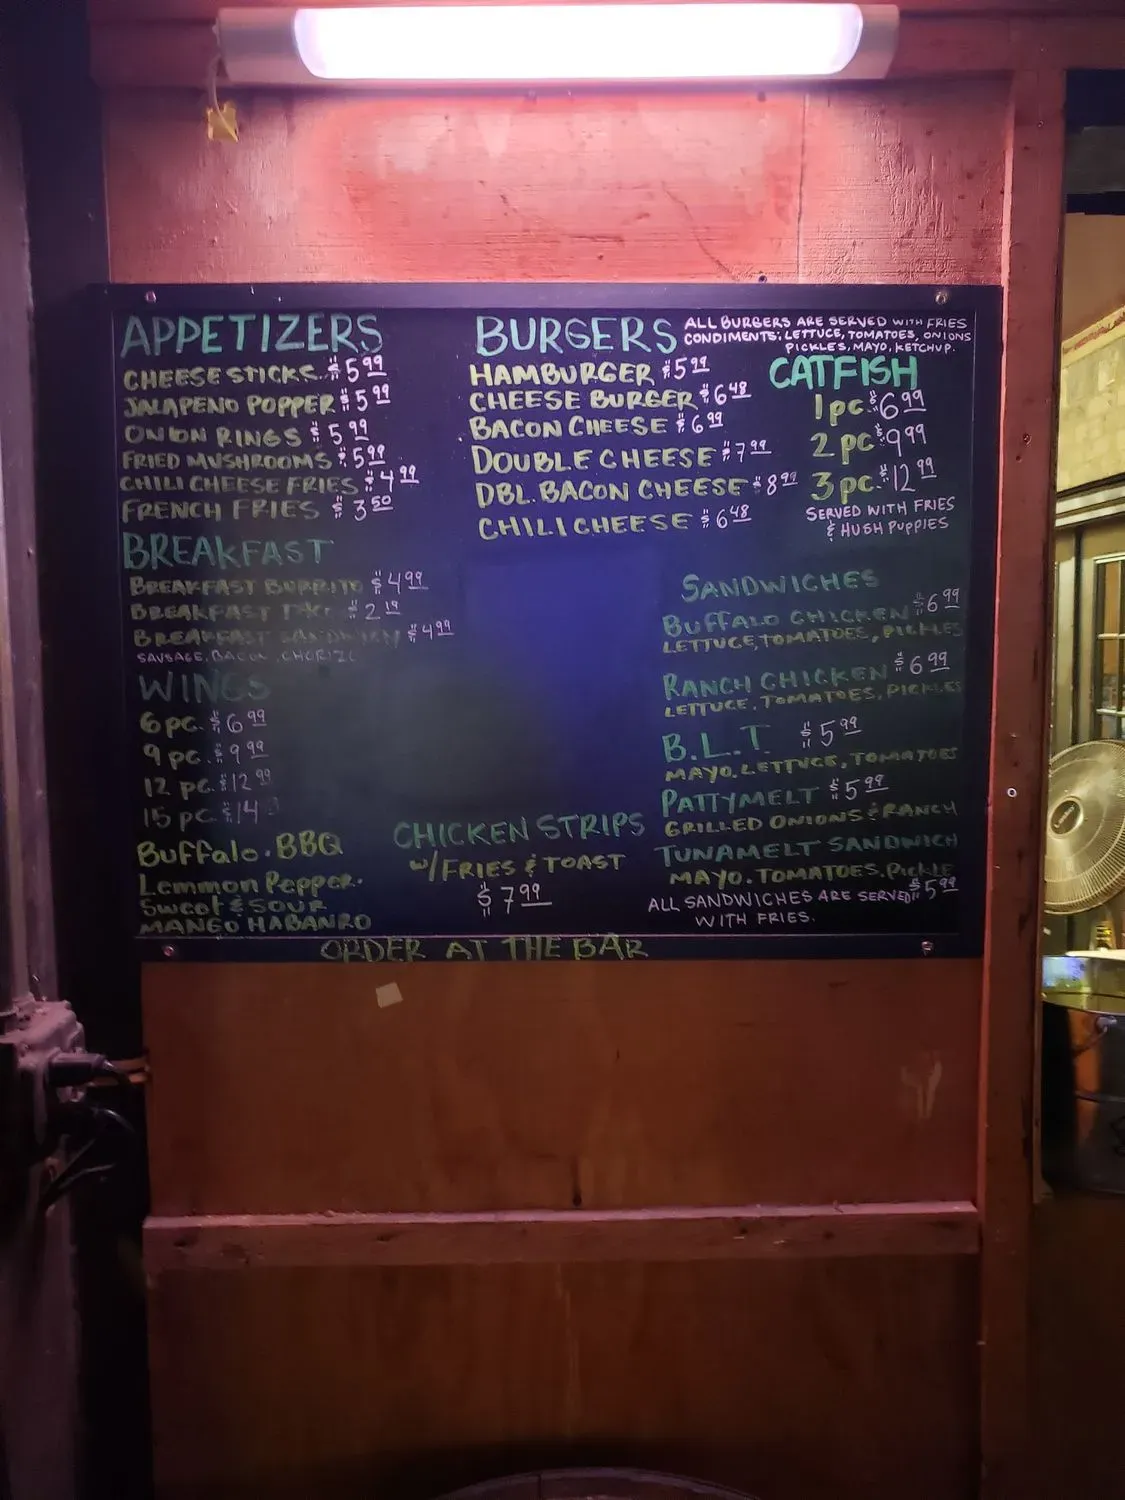 APPETIZERS
CHEESE STICKS $5.99
JALAPENO POPPER $5.99
ONION RINGS $5.99
FRIED MUSHROOMS $5.99
CHILI CHEESE FRIES $4.99
FRENCH FRIES $3.50
BREAKFAST
BREAKFAST BURRITO $4.99
BREAKFAST $2.19
BREAKFAST SANDWICH $4.99
SAUSAGE, BACON, CHORIZO
WINGS
6 pc. $6.99
9 pc. $9.99
12 pc. $12.99
15 pc. $14
Buffalo. BBQ
Lemmon Pepper.
Sweet & SOUR
MANGO HABANRO
BURGERS
ALL BURGERS ARE SERVED WITH FRIES
CONDIMENTS: LETTUCE, TOMATOES, ONIONS
PICKLES, MAYO, KETCHUP.
HAMBURGER $5.99
CHEESE BURGER $6.48
BACON CHEESE $6.99
DOUBLE CHEESE $7.99
DBL. BACON CHEESE $8.99
CHILI CHEESE $6.48
CATFISH
1 pc. $6.99
2 pc. $9.99
3 pc. $12.99
SERVED WITH FRIES
& HUSH PUPPIES
SANDWICHES
BUFFALO CHICKEN $6.99
LETTUCE, TOMATOES, PICKLES
RANCH CHICKEN $6.99
LETTUCE, TOMATOES, PICKLES
B.L.T. $5.99
MAYO. LETTUCE, TOMATOES
PATTYMELT $5.99
GRILLED ONIONS & RANCH
TUNAMELT SANDWICH
MAYO. TOMATOES. PICKLE $5.99
ALL SANDWICHES ARE SERVED
WITH FRIES.
CHICKEN STRIPS
W/FRIES & TOAST
$7.99
ORDER AT THE BAR